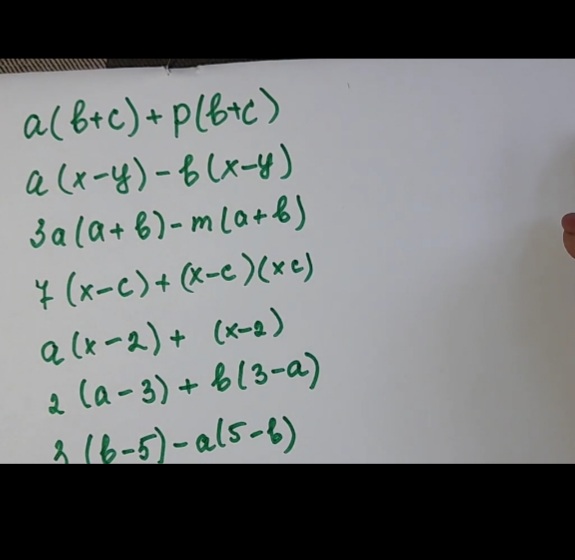 a(b+c)+p(b+c)
a(x-y)-b(x-y)
3a(a+b)-m(a+b)
7(x-c)+(x-c)(xc)
a(x-2)+ (x-2)
2(a-3)+b(3-a)
3(b-5)-a(5-b)